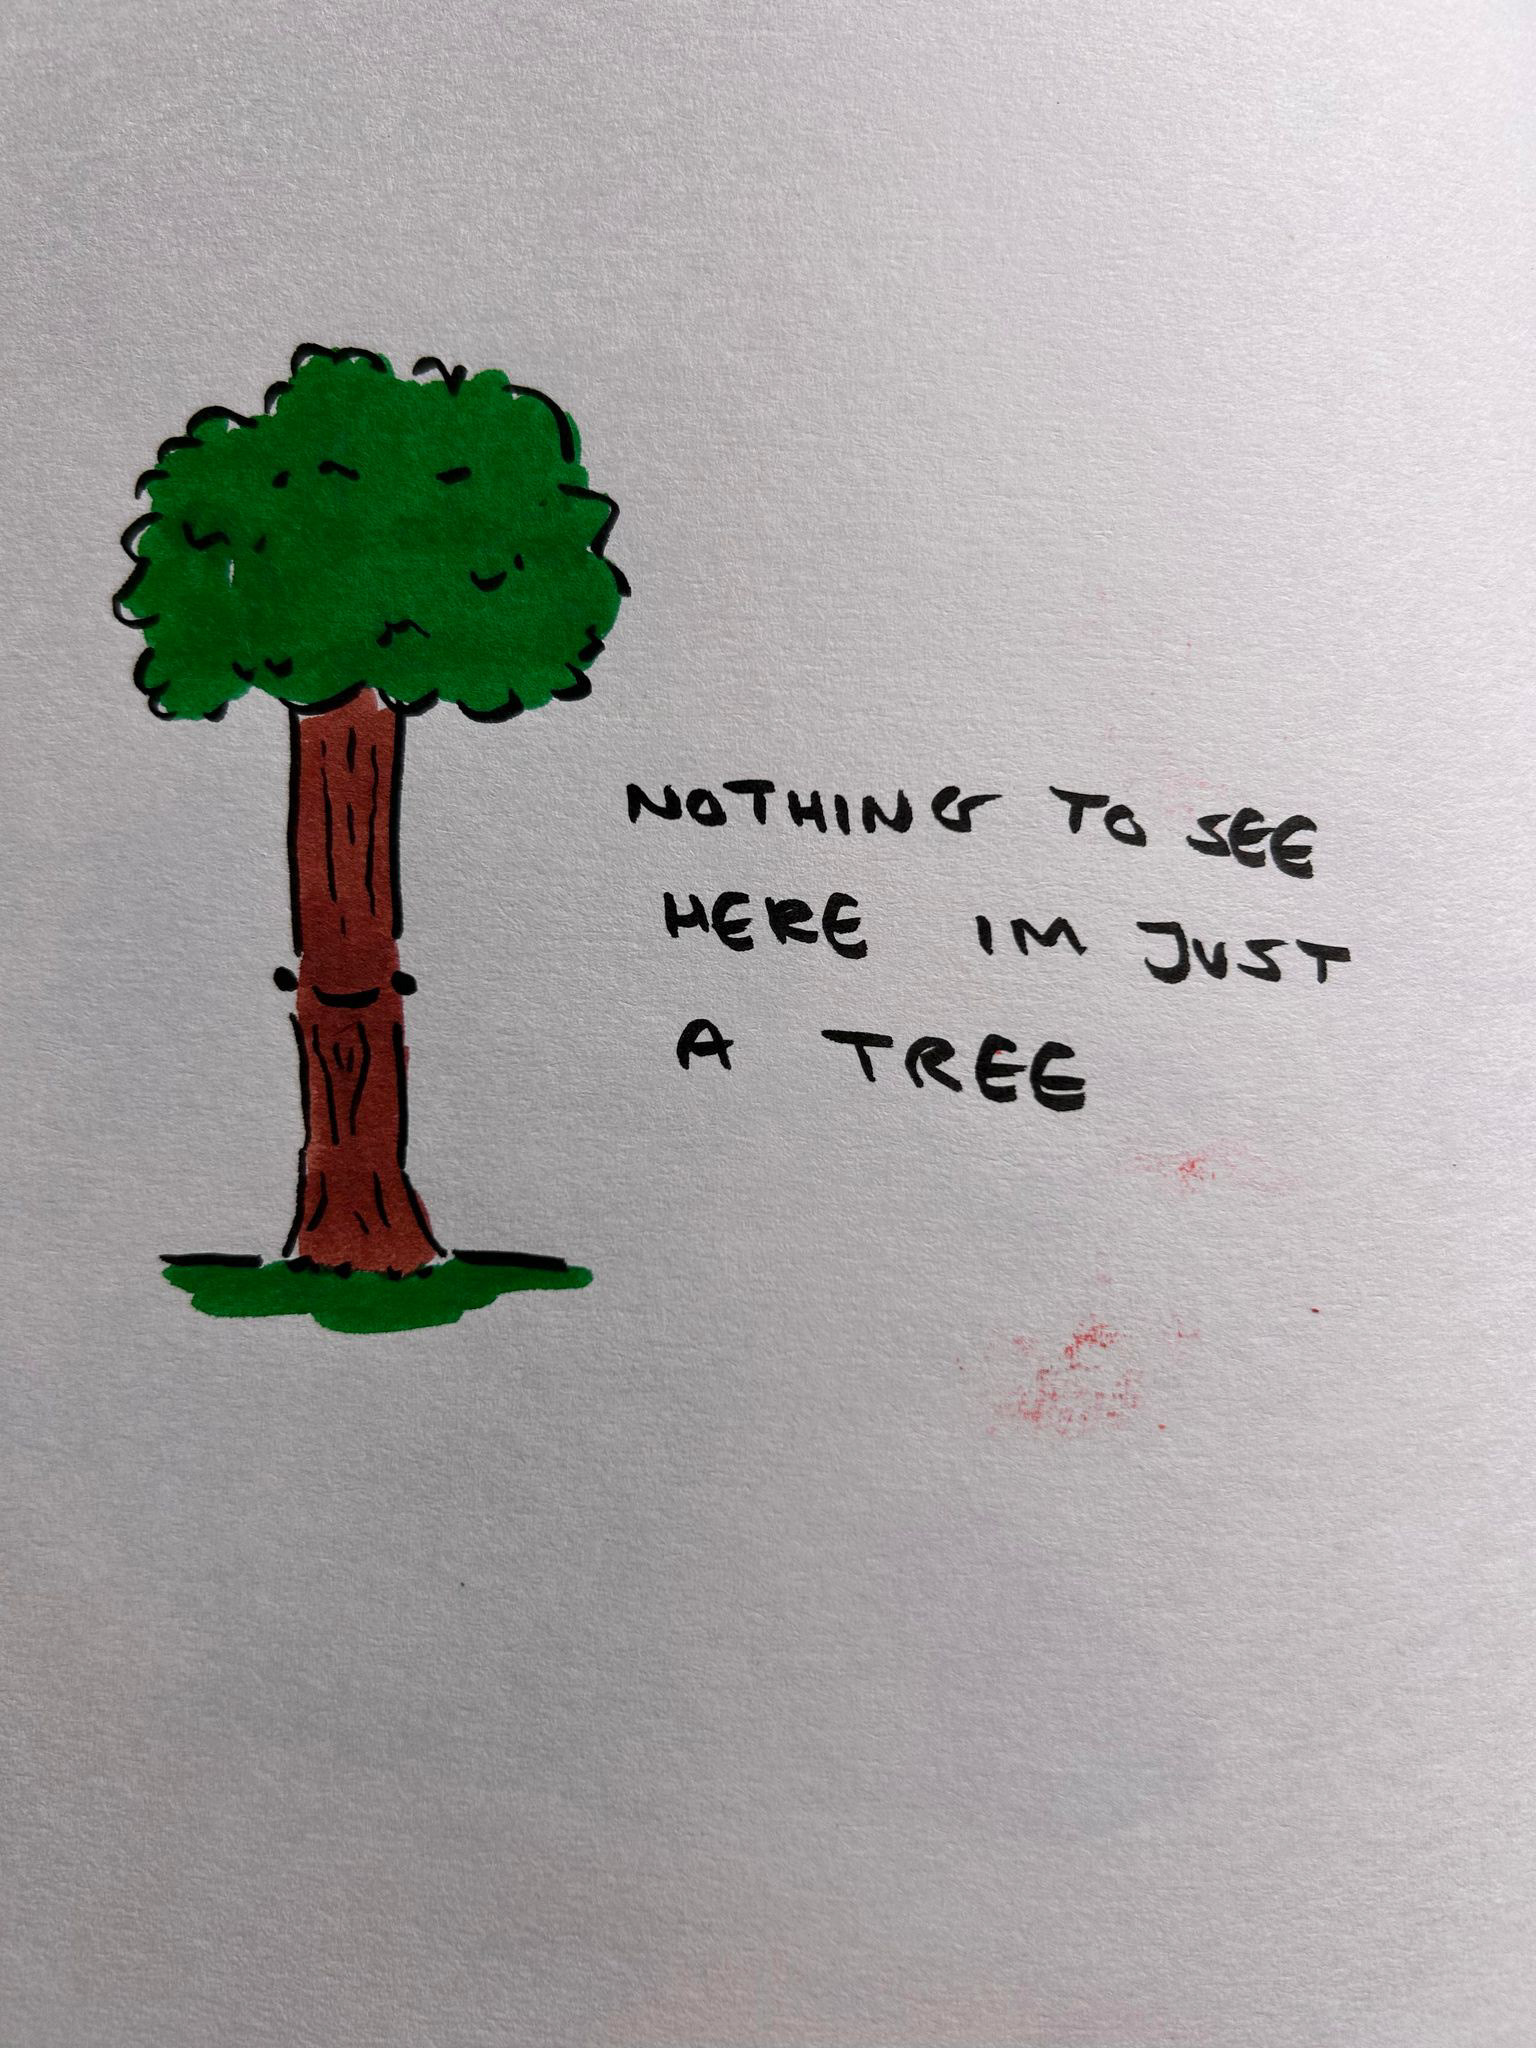 NOTHING TO SEE
HERE IM JUST
A TREE